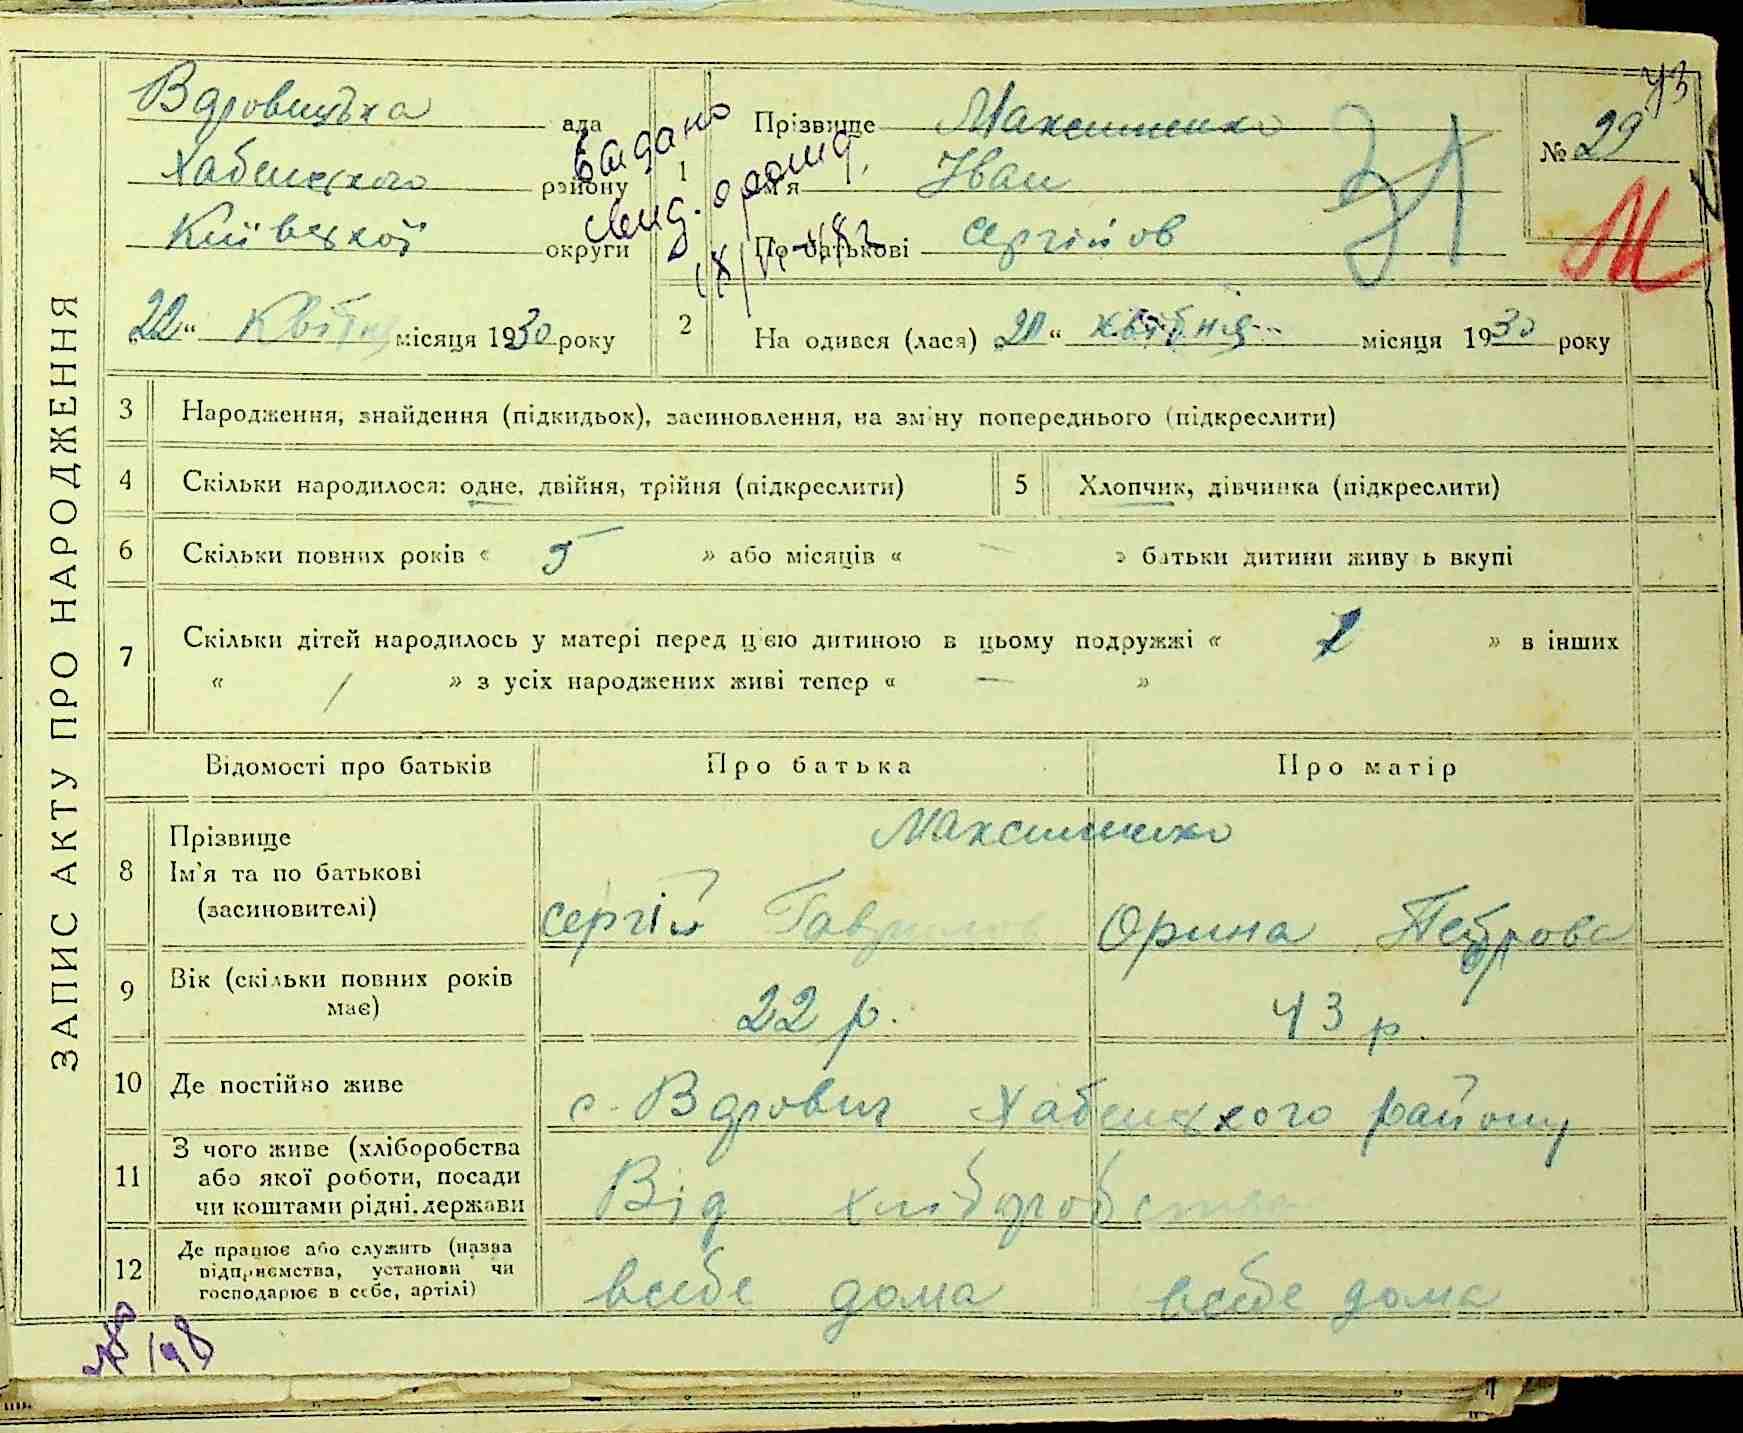 43
ЗАПИС АКТУ ПРО НАРОДЖЕННЯ
Вдовицька ада
Хабенського району
Київської округи
„22“ Квітня місяця 1930 року
Видано
свид.
1 Прізвище Максименко
Ім'я Іван
По батькові Сергійов
№ 29
2 На одився (лася) „20“ квітня місяця 1930 року
3 Народження, знайдення (підкидьок), засиновлення, на зміну попереднього (підкреслити)
4 Скільки народилося: одне, двійня, трійня (підкреслити)
5 Хлопчик, дівчинка (підкреслити)
6 Скільки повних років « 5 » або місяців « — » батьки дитини живу ь вкупі
7 Скільки дітей народилось у матері перед цією дитиною в цьому подружжі « » в інших
« / » з усіх народжених живі тепер « — »
Відомості про батьків Про батька Про матір
8 Прізвище
Ім'я та по батькові
(засиновителі)
Максименко
Сергій Гаврилов Орина Петрова
9 Вік (скільки повних років
має)
22 р. 43 р.
10 Де постійно живе
с. Вдович Хабенського району
11 З чого живе (хліборобства
або якої роботи, посади
чи коштами рідні, держави
Від хліборобства
12 Де працює або служить (назва
підприємства, установи чи
господарює в себе, артілі)
всебе дома всебе дома
198